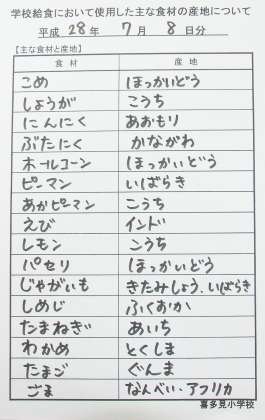 学校給食において使用した主な食材の産地について
平成 28 年 7 月 8 日分
【主な食材と産地】
食材 産地
こめ ほっかいどう
しょうが こうち
にんにく あおもり
ぶたにく かながわ
ホールコーン ほっかいどう
ピーマン いばらき
あかピーマン こうち
えび インド
レモン こうち
パセリ ほっかいどう
じゃがいも きたみしょう、いばらき
しめじ ふくおか
たまねぎ あいち
わかめ とくしま
たまご ぐんま
ごま なんべい・アフリカ
喜多見小学校